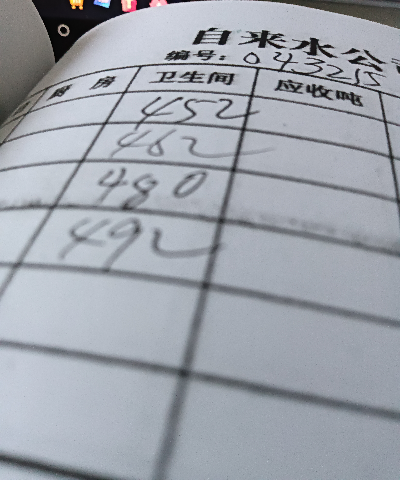 自来水公
编号：043215
厨房 卫生间 应收吨
452
462
480
492